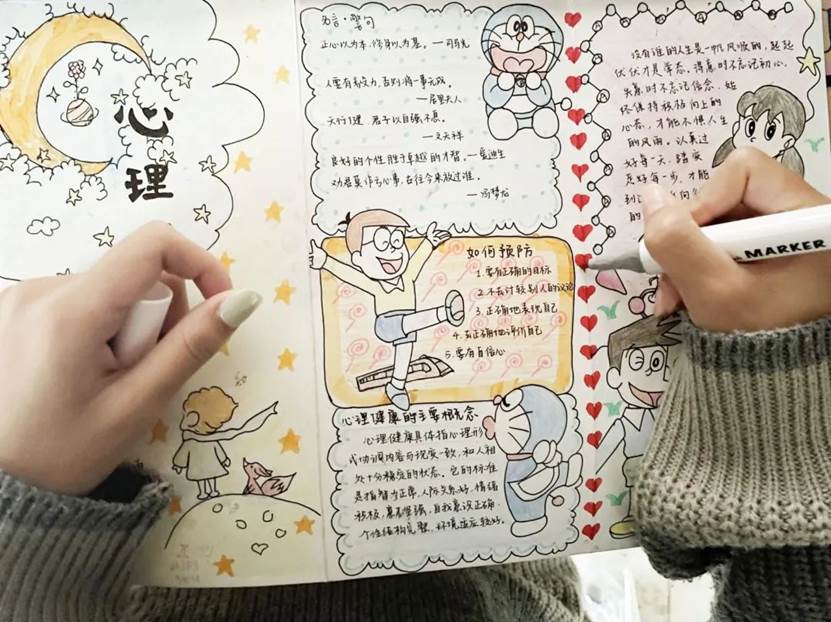 心
理
名言·警句
正心以为本,修身以为基。——司马光
人要有毅力,否则将一事无成。
——居里夫人
天行健,君子以自强不息。
——文天祥
良好的个性胜于卓越的才智。——爱迪生
劝君莫作亏心事,古往今来放过谁。
——冯梦龙
如何预防
1.要有正确的目标
2.不去计较别人的议论
3.正确地表现自己
4.去正确地评价自己
5.要有自信心
心理健康的主要概念
心理健康具体指心理形
式协调内容与现实一致,和人相
处十分稳定的状态。它的标准
是指智力正常,人际关系好,情绪
积极,意志坚强,自我意识正确,
个性结构完整,环境适应较好。
没有谁的人生是一帆风顺的,起起
伏伏才是常态。得意时不忘记初心,
失意时不忘记信念,始
终保持放在向上的
心态,才能不惧人生
的风雨。认真过
好每一天,踏实
走好每一步,才能
MARKER